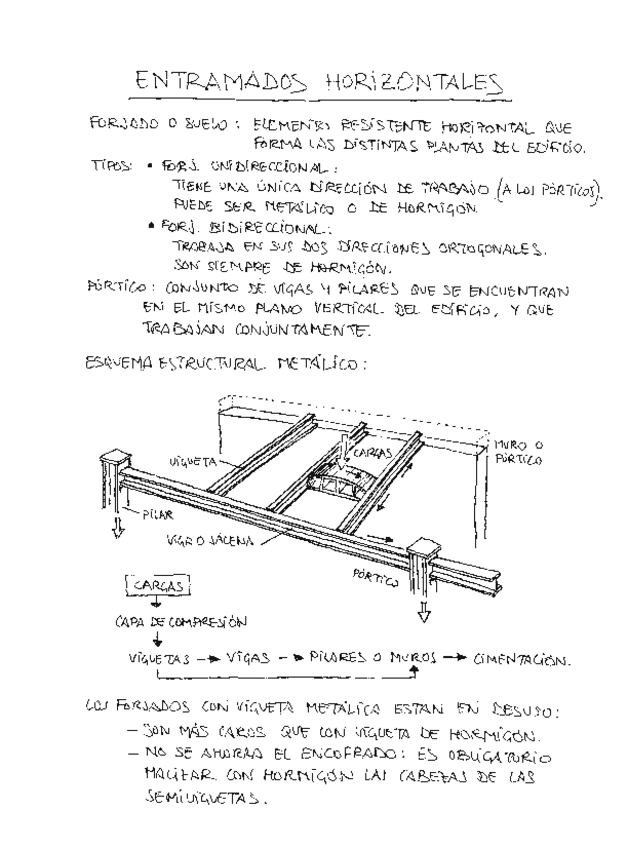 ENTRAMADOS HORIZONTALES
FORJADO O SUELO: ELEMENTO RESISTENTE HORIZONTAL QUE
FORMA LAS DISTINTAS PLANTAS DEL EDIFICIO.
TIPOS: • FORJ. UNIDIRECCIONAL:
TIENE UNA ÚNICA DIRECCIÓN DE TRABAJO (A LOS PÓRTICOS).
PUEDE SER METÁLICO O DE HORMIGÓN.
• FORJ. BIDIRECCIONAL:
TRABAJA EN SUS DOS DIRECCIONES ORTOGONALES.
SON SIEMPRE DE HORMIGÓN.
PÓRTICO: CONJUNTO DE VIGAS Y PILARES QUE SE ENCUENTRAN
EN EL MISMO PLANO VERTICAL DEL EDIFICIO, Y QUE
TRABAJAN CONJUNTAMENTE.
ESQUEMA ESTRUCTURAL METÁLICO:
MURO O
PÓRTICO
CARGAS
VIGUETA
PILAR
VIGA O JÁCENA
PÓRTICO
CARGAS
CAPA DE COMPRESIÓN
VIGUETAS → VIGAS → PILARES O MUROS → CIMENTACIÓN.
LOS FORJADOS CON VIGUETA METÁLICA ESTAN EN DESUSO:
– SON MÁS CAROS QUE CON VIGUETA DE HORMIGÓN.
– NO SE AHORRA EL ENCOFRADO: ES OBLIGATORIO
MACIZAR CON HORMIGÓN LAS CABEZAS DE LAS
SEMIVIGUETAS.